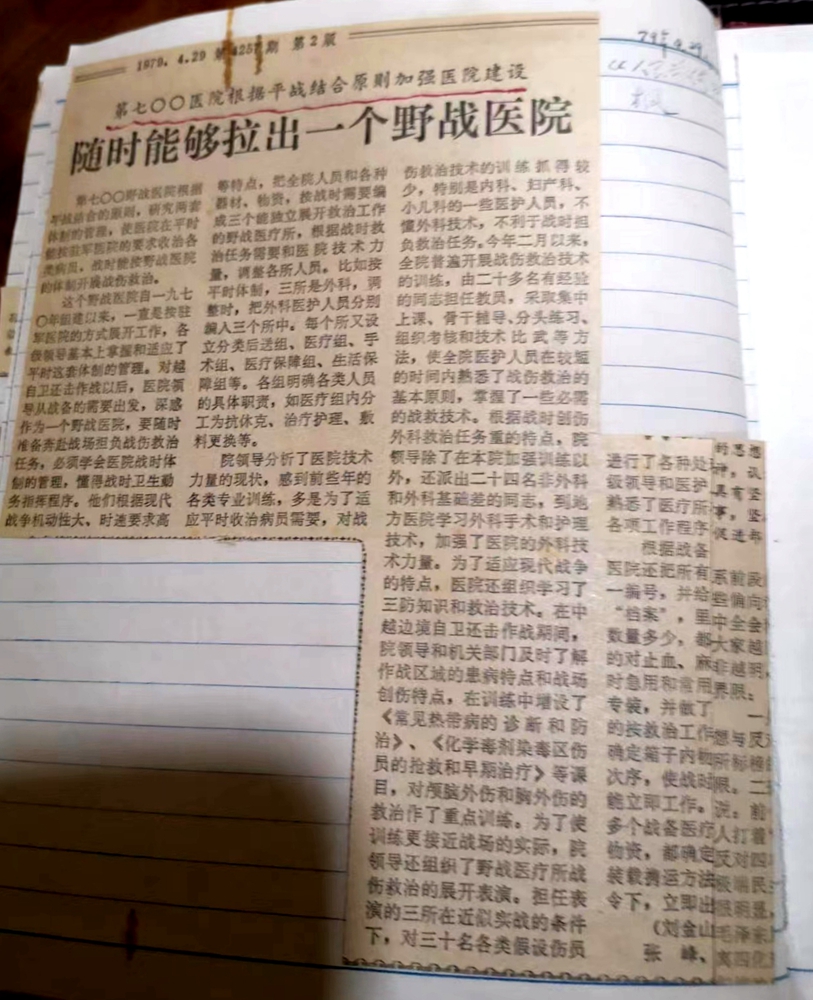 1979.4.29 第4257期 第2版
第七〇〇医院根据平战结合原则加强医院建设
随时能够拉出一个野战医院
第七〇〇野战医院根据
平战结合的原则，研究两套
体制的管理，使医院在平时
能按驻军医院的要求收治各
类病员，战时能按野战医院
的体制开展战伤救治。
这个野战医院自一九七
〇年组建以来，一直是按驻
军医院的方式展开工作，各
级领导基本上掌握和适应了
平时这套体制的管理。对越
自卫还击作战以后，医院领
导从战备的需要出发，深感
作为一个野战医院，要随时
准备奔赴战场担负战伤救治
任务，必须学会医院战时体
制的管理，懂得战时卫生勤
务指挥程序。他们根据现代
战争机动性大、时速要求高
等特点，把全院人员和各种
器材、物资，按战时需要编
成三个能独立展开救治工作
的野战医疗所，根据战时救
治任务需要和医院技术力
量，调整各所人员。比如按
平时体制，三所是外科，调
整时，把外科医护人员分别
编入三个所中。每个所又设
立分类后送组、医疗组、手
术组、医疗保障组、生活保
障组等。各组明确各类人员
的具体职责，如医疗组内分
工为抗休克、治疗护理、敷
料更换等。
院领导分析了医院技术
力量的现状，感到前些年的
各类专业训练，多是为了适
应平时收治病员需要，对战
伤救治技术的训练抓得较
少，特别是内科、妇产科、
小儿科的一些医护人员，不
懂外科技术，不利于战时担
负救治任务。今年二月以来，
全院普遍开展战伤救治技术
的训练，由二十多名有经验
的同志担任教员，采取集中
上课、骨干辅导、分头练习、
组织考核和技术比武等方
法，使全院医护人员在较短
的时间内熟悉了战伤救治的
基本原则，掌握了一些必需
的战救技术。根据战时创伤
外科救治任务重的特点，院
领导除了在本院加强训练以
外，还派出二十四名非外科
和外科基础差的同志，到地
方医院学习外科手术和护理
技术，加强了医院的外科技
术力量。为了适应现代战争
的特点，医院还组织学习了
三防知识和救治技术。在中
越边境自卫还击作战期间，
院领导和机关部门及时了解
作战区域的患病特点和战场
创伤特点，在训练中增设了
《常见热带病的诊断和防
治》、《化学毒剂染毒区伤
员的抢救和早期治疗》等课
目，对颅脑外伤和胸外伤的
救治作了重点训练。为了使
训练更接近战场的实际，院
领导还组织了野战医疗所战
伤救治的展开表演。担任表
演的三所在近似实战的条件
下，对三十名各类假设伤员
进行了各种处
级领导和医护
熟悉了医疗所
各项工作程序
根据战备
医院还把所有
一编号，并给
“档案”，里
数量多少，都
的对止血、麻
时急用和常用
专装，并做了
的按救治工作
确定箱子内物
次序，使战时
能立即工作。
多个战备医疗
物资，都确定
装载携运方法
令下，立即出
（刘金山
张 峰、
的思想
神，认
具有坚
事，坚
促进部
系前段
些偏向
中全会
大家越
非越明，
界限。
想与反
所标榜
限。二
说：前
人打着
反对四
极端民
毛泽东
离四化